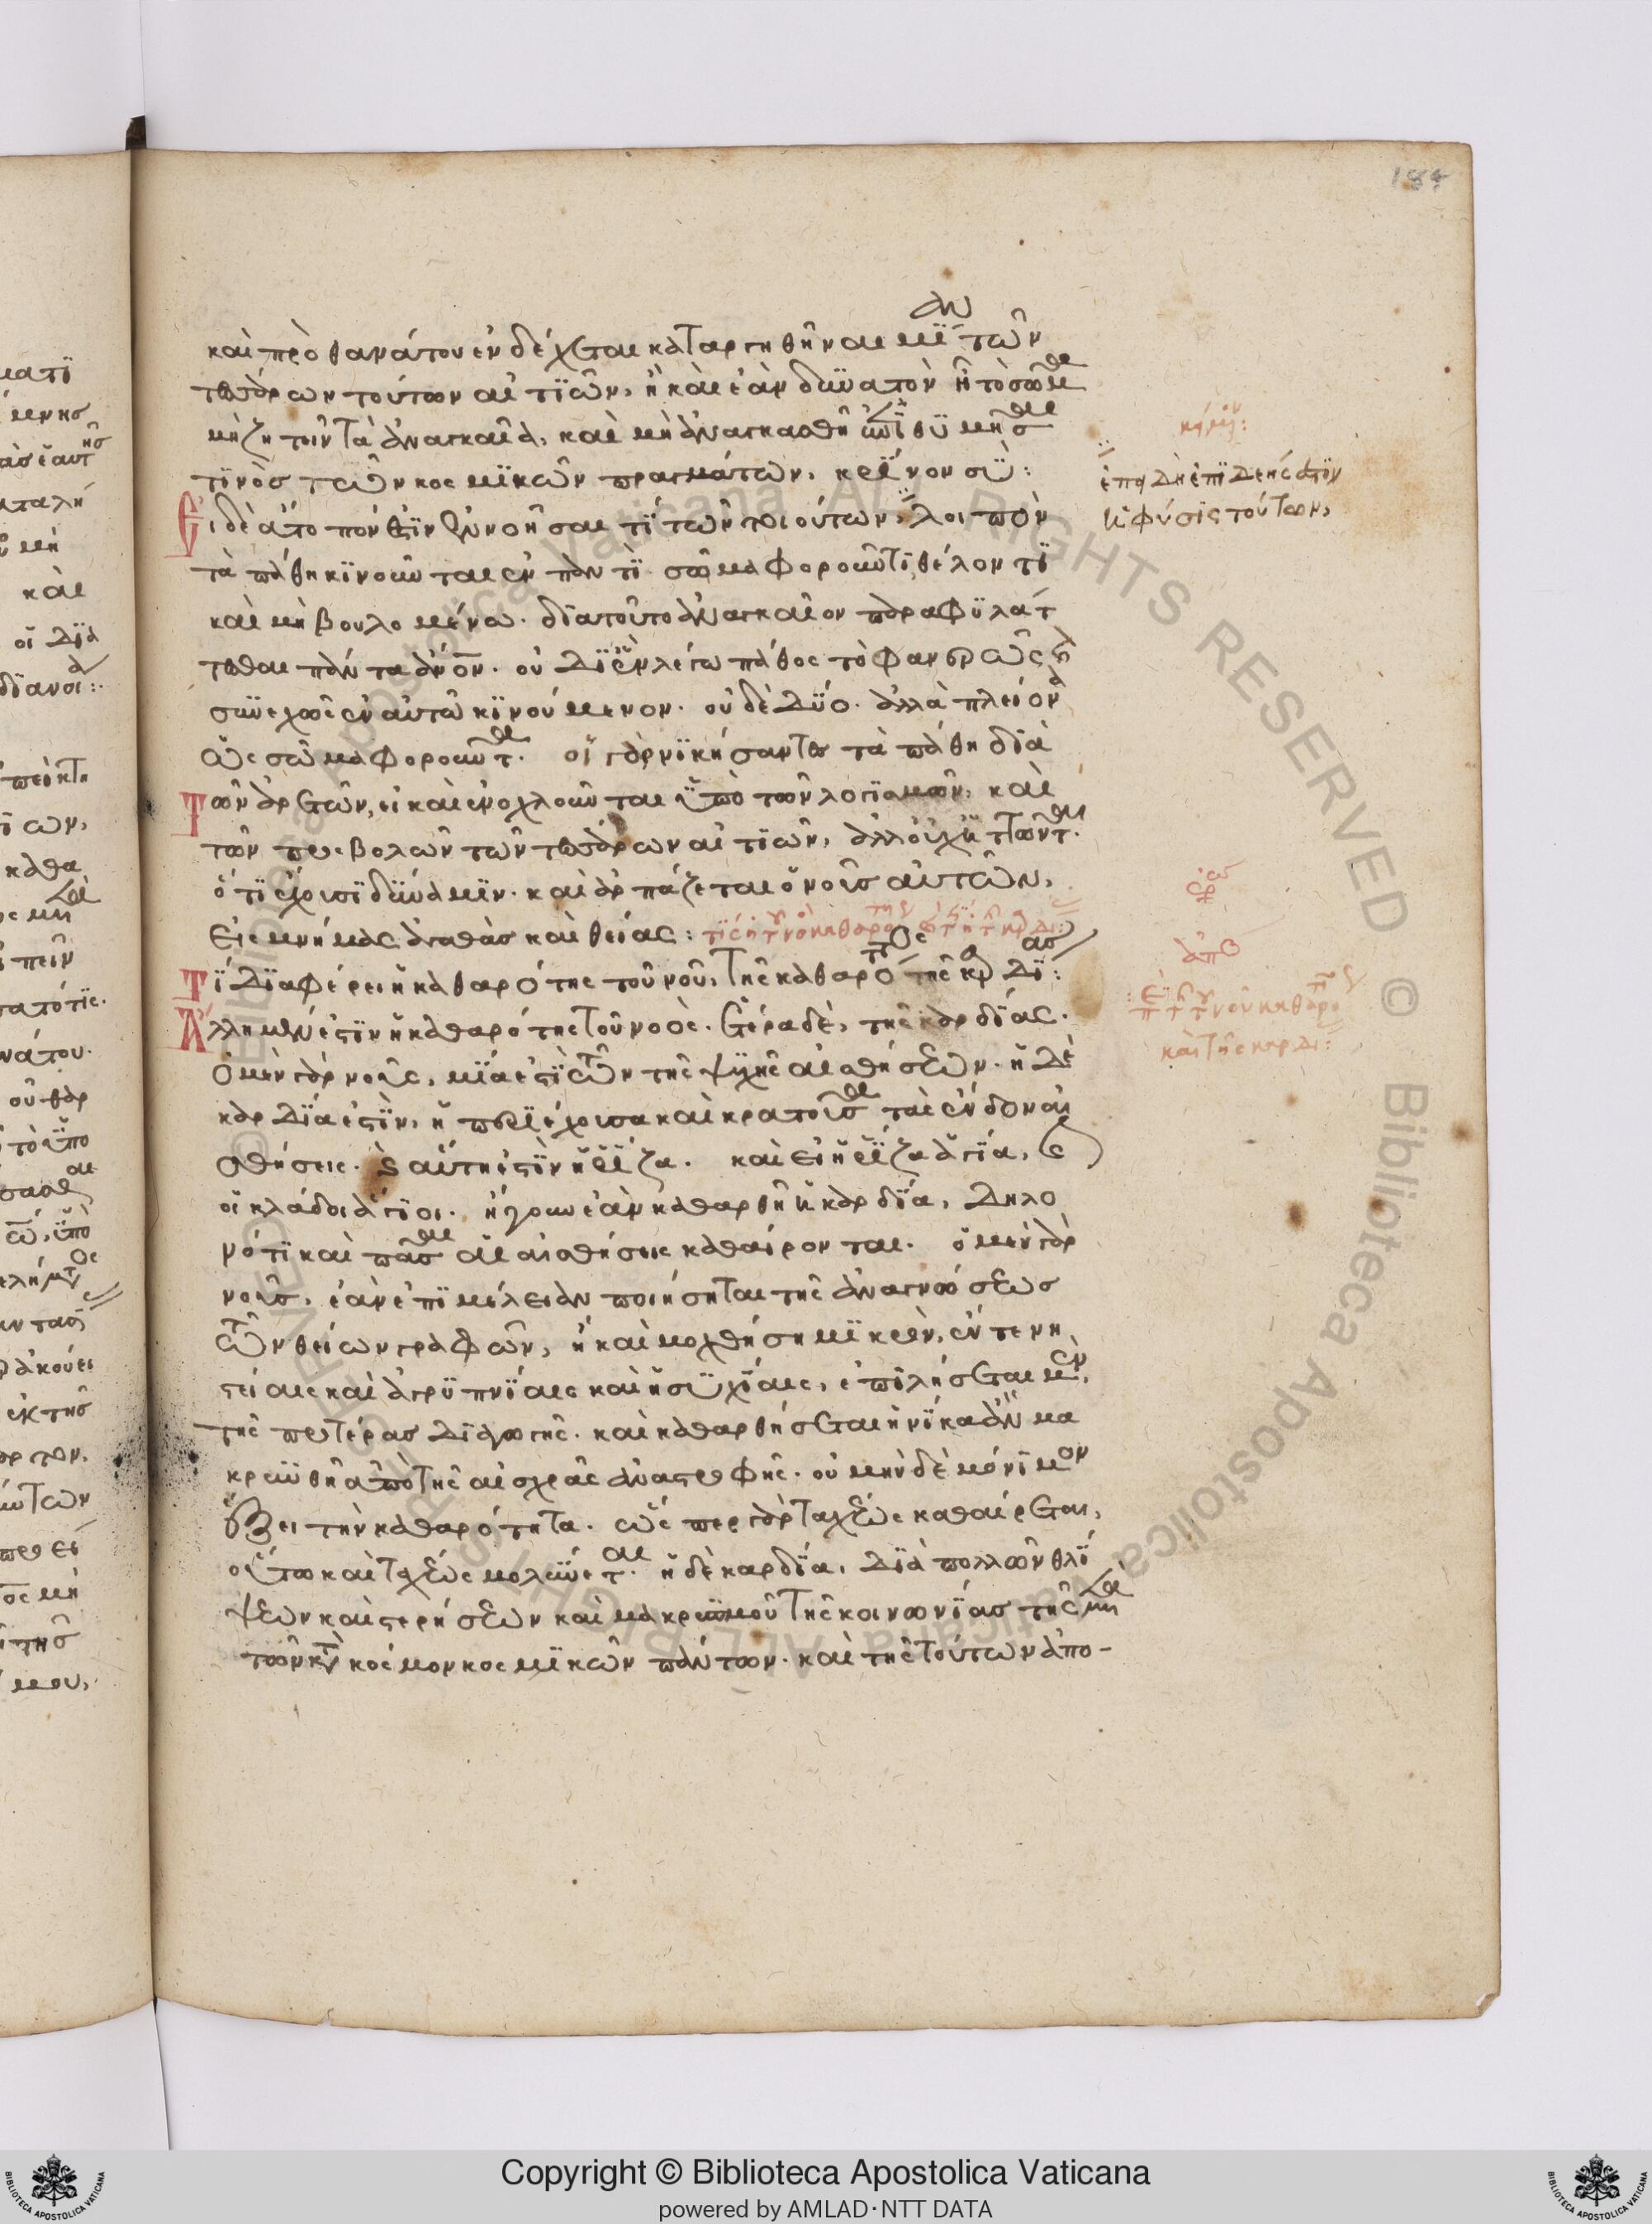 184
καὶ πρὸ θανάτου ἐνδέχεται καταργηθῆναι μίαν τῶν
τεσσάρων τούτων αἰτιῶν, ἢ καὶ ἐὰν δυνατὸν ᾖ τὸ σῶμα
μὴ ζητεῖν τὰ ἀναγκαῖα, καὶ μὴ ἀναγκασθῇ ἐπιθυμῆσαι
τινὸς τῶν κοσμικῶν πραγμάτων, κρῖνον σύ:
Εἰ δὲ ἄτοπόν ἐστιν ἐννοῆσαι τί τῶν τοιούτων, λοιπὸν
τὰ πάθη κινοῦνται ἐν παντὶ σῶμα φοροῦντι θέλοντι
καὶ μὴ βουλομένω. διατοῦτο ἀναγκαῖον παραφυλάτ
τεσθαι πάντα ἀνον. οὐ δι' ἓν λέγω πάθος τὸ φανερῶς καὶ
συνεχῶς ἐν αὐτῶ κινούμενον. οὐδὲ δύο. ἀλλὰ πλείονα
ὡς σῶμα φοροῦνται. οἱ γὰρ νικήσαντες τὰ πάθη διὰ
τῶν ἀρετῶν, εἰ καὶ ἐνοχλοῦνται ὑπὸ τῶν λογισμῶν, καὶ
τῶν προσβολῶν τῶν τεσσάρων αἰτιῶν, ἀλλ' οὐχ ἡττῶνται.
ὅτι ἔχουσι δύναμιν. καὶ ἁρπάζεται ὁ νοῦς αὐτῶν,
εἰς μνήμας ἀγαθὰς καὶ θείας:
Τί διαφέρει ἡ καθαρότης τοῦ νοῦ, τῆς καθαρότητος τῆς καρδίας:
Ἄλλη μέν ἐστιν ἡ καθαρότης τοῦ νοός. ἑτέρα δὲ, τῆς καρδίας.
Ὁ μὲν γὰρ νοῦς, μία ἐστὶ τῶν τῆς ψυχῆς αἰσθήσεων. ἡ δὲ
καρδία ἐστὶν, ἡ περιέχουσα καὶ κρατοῦσα τὰς ἔνδον αἰ
σθήσεις. καὶ αὕτη ἐστὶν ἡ ῥίζα. καὶ εἰ ἡ ῥίζα ἁγία, καὶ
οἱ κλάδοι ἅγιοι. ἤγουν ἐὰν καθαρθῇ ἡ καρδία, δηλο
νότι καὶ πᾶσαι αἱ αἰσθήσεις καθαίρονται. ὁ μὲν γὰρ
νοῦς, ἐὰν ἐπιμέλειαν ποιήσηται τῆς ἀναγνώσεως
τῶν θείων γραφῶν, ἢ καὶ μοχθήση μικρὸν, ἔν τε νη
στείαις καὶ ἀγρυπνίαις καὶ ἡσυχίαις, ἐπιλήσεται μὲν,
τῆς προτέρας διαγωγῆς. καὶ καθαρθήσεται ἡνίκα ἂν μα
κρυνθῇ ἀπὸ τῆς αἰσχρᾶς ἀναστροφῆς. οὐ μὴν δὲ μόνιμον
ἕξει τὴν καθαρότητα. ὥσπερ γὰρ ταχέως καθαίρεται,
οὕτω καὶ ταχέως μολύνεται. ἡ δὲ καρδία, διὰ πολλῶν θλί
ψεων καὶ στερήσεων καὶ μακρυσμοῦ τῆς κοινωνίας τῆς μετὰ
τῶν κατὰ κόσμον κοσμικῶν πάντων. καὶ τῆς τούτων ἀπο-
κείμενον:
ἐπειδὴ ἐπιδεής ἐστιν
ἡ φύσις τούτων,
ἐρώ
ἀπό
περὶ τῆς τοῦ νοῦ καθαρότητος
καὶ τῆς καρδί: